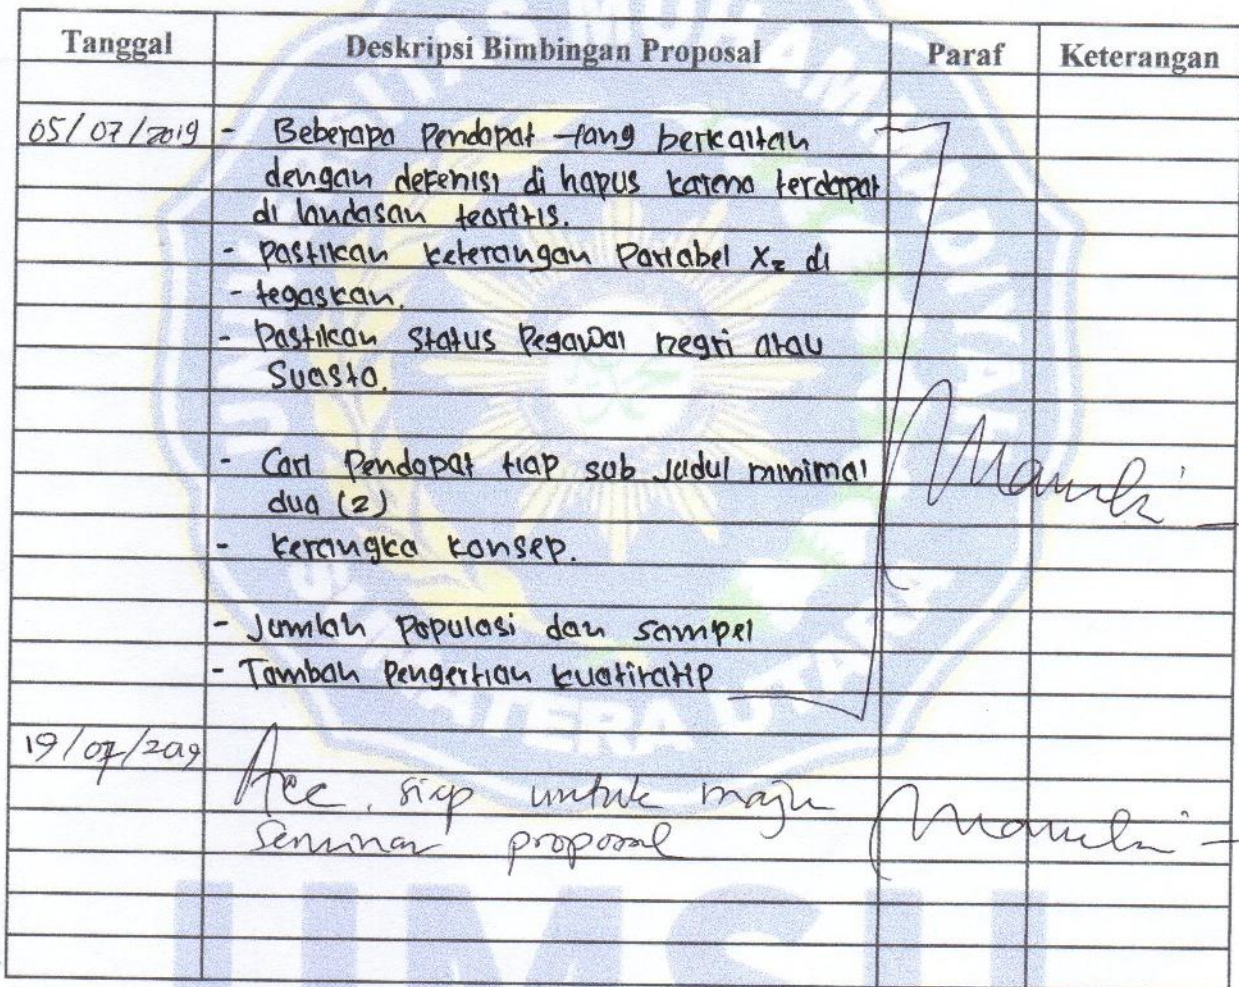 Tanggal Deskripsi Bimbingan Proposal Paraf Keterangan
05/07/2019 - Beberapa Pendapat yang berkaitan
dengan defenisi di hapus karena terdapat
di landasan teoritis.
- Pastikan keterangan Pariabel X2 di
- tegaskan.
- Pastikan status Pegawai negri atau
Suasta.
- Cari Pendapat tiap sub Judul minimal
dua (2)
- Kerangka konsep.
- Jumlah Populasi dan sampel
- Tambah Pengertian kuatitatip
19/07/2019 Acc, siap untuk maju
seminar proposal
UNIVERSITAS MUHAMMADIYAH
SUMATERA UTARA
UMSU